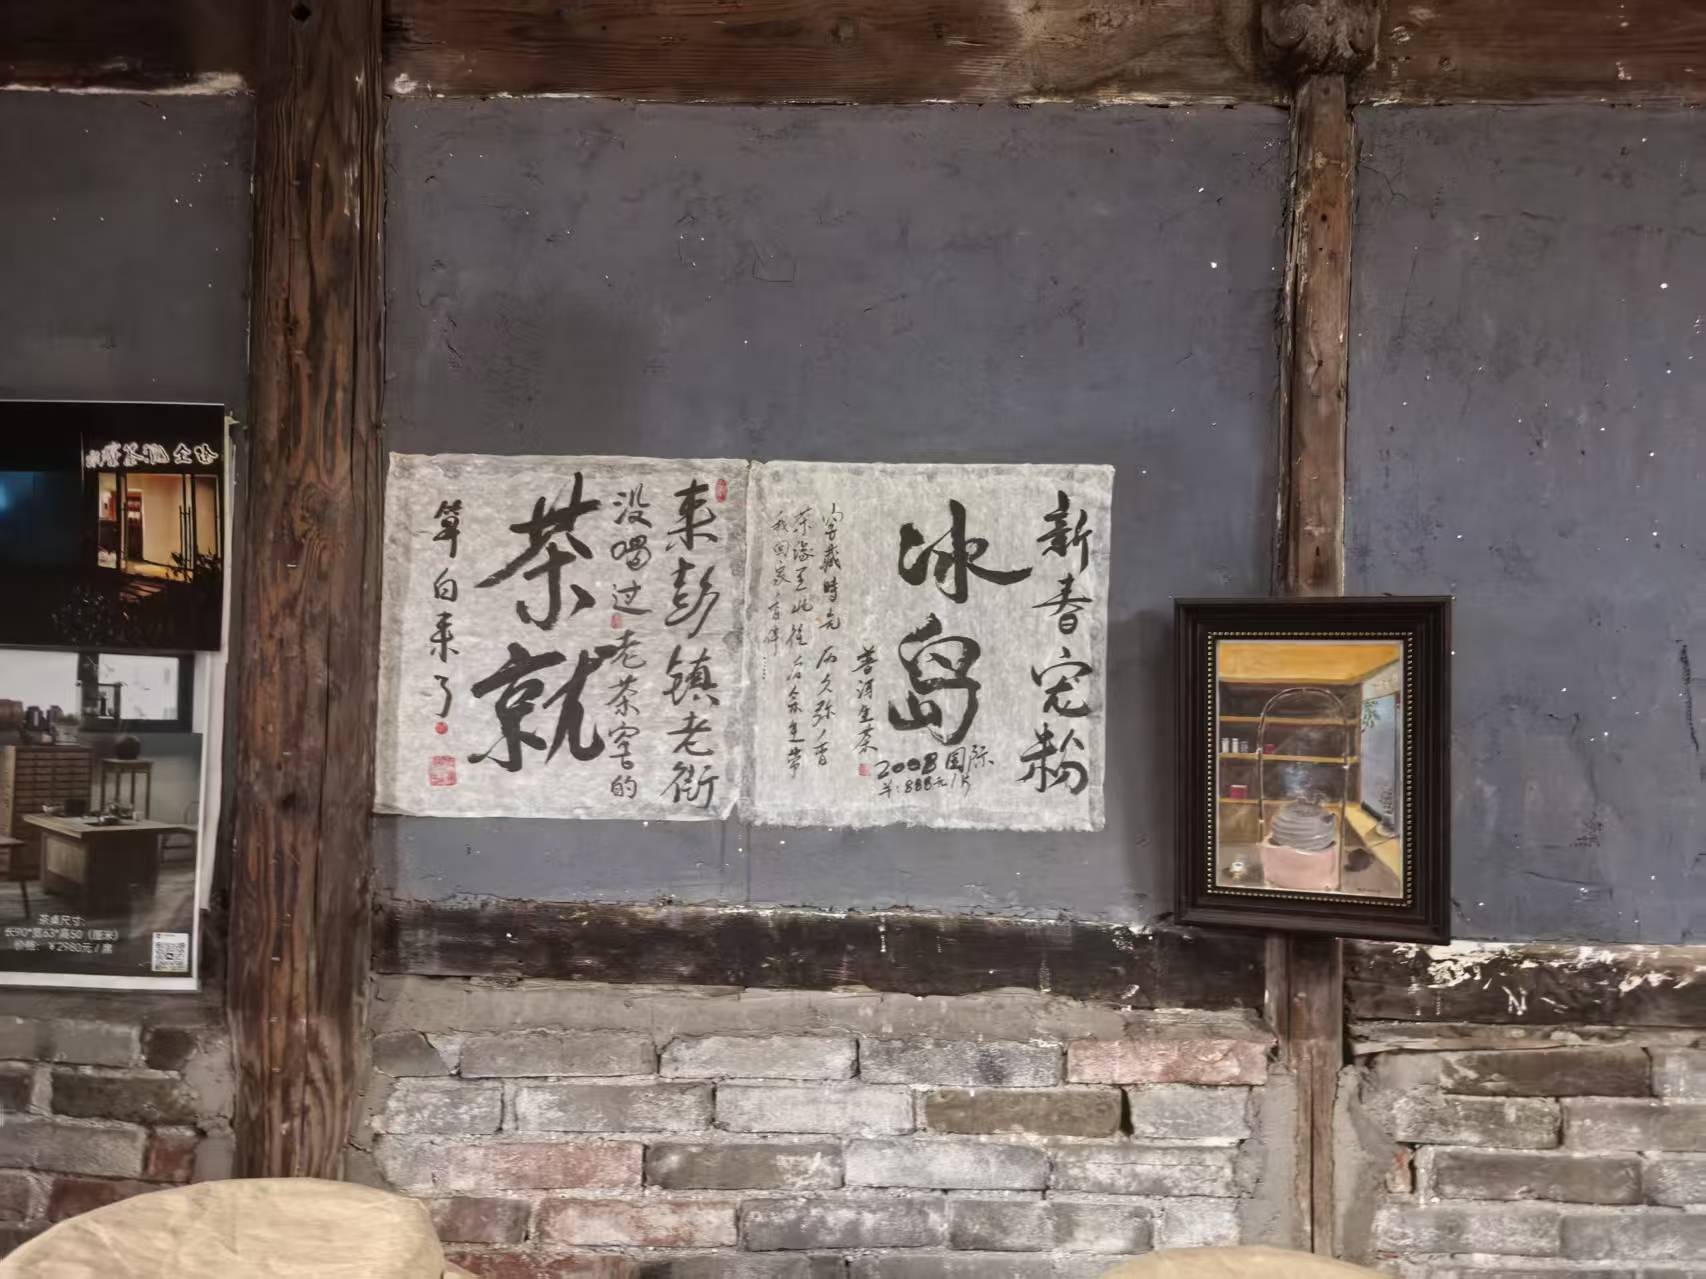 新春宠粉
冰岛
2008国际
羊:888元/片
普洱生茶
窖藏时光 历久弥香
茶缘至此 往后余生带
我回家 有伴……
来彭镇老街
没喝过老茶窖的
茶 就
算白来了
茶桌尺寸:
长90*宽63*高50（厘米）
价格：￥2980元/席